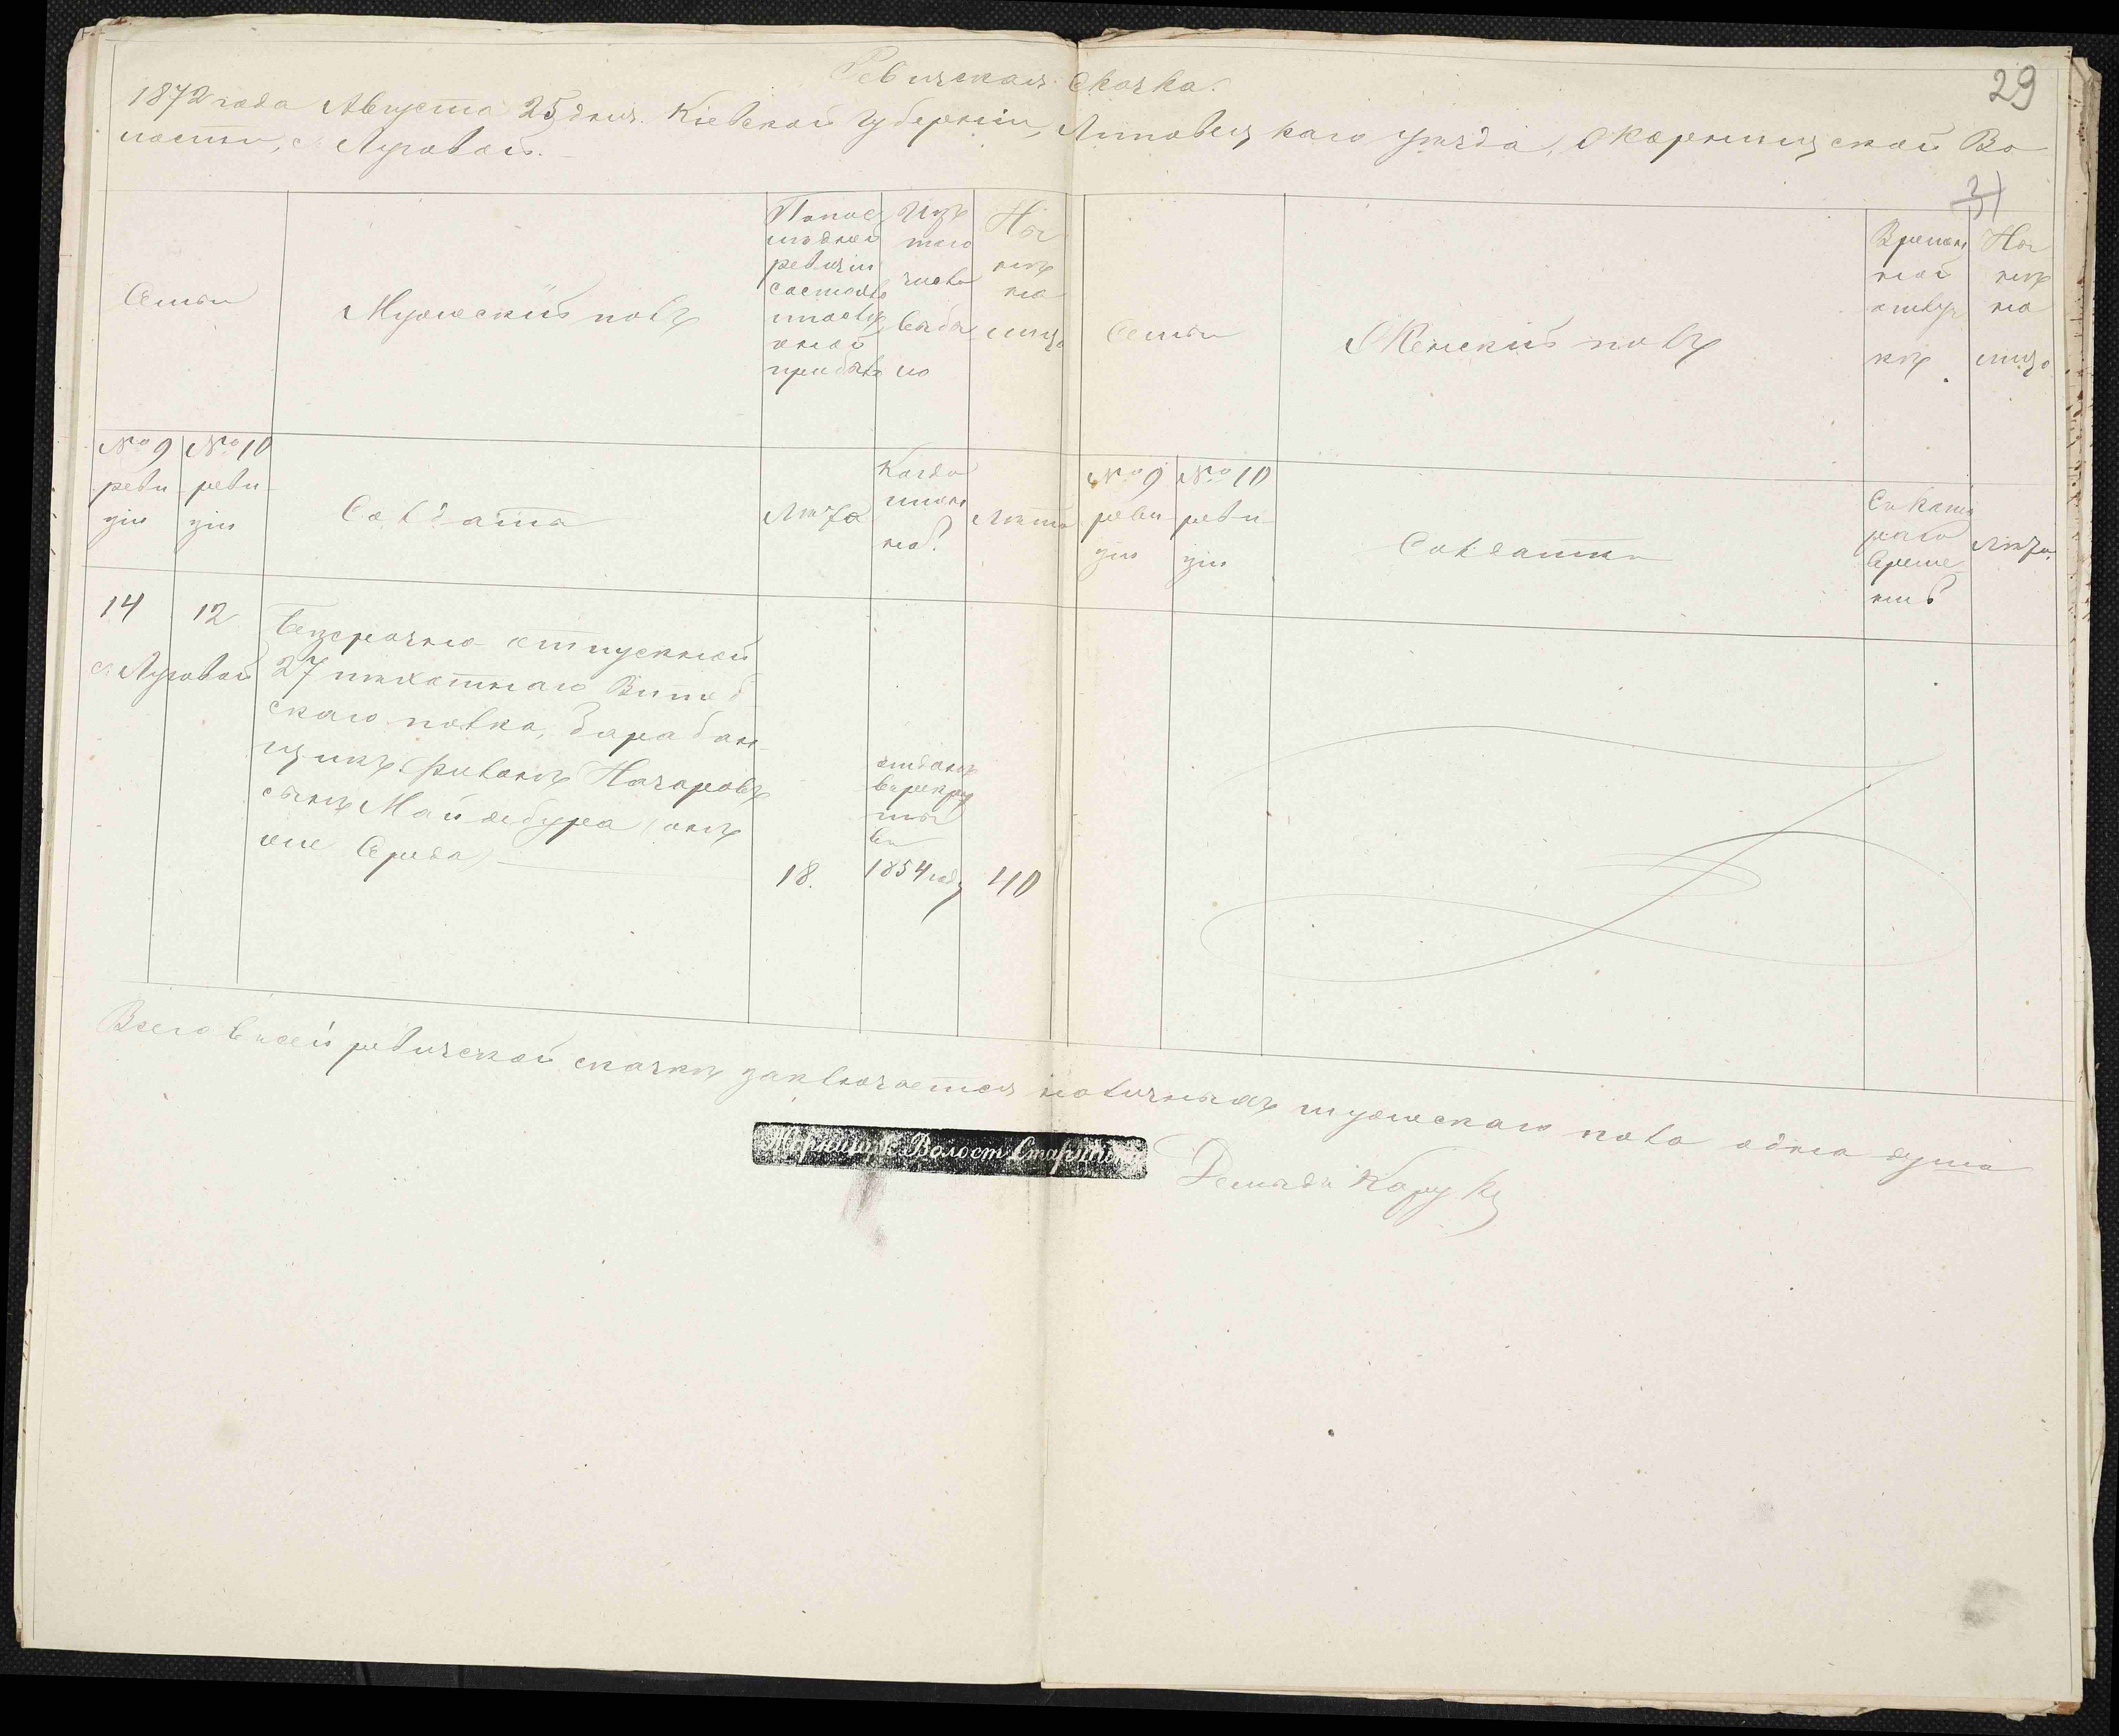 29
Ревизская Сказка.
1872 года Августа 25 дня. Кіевской Губерніи, Липовецкаго уѣзда, Жорнищской Во
лости, с. Луговой.
31
Семьи
Мужескій полъ
Попос
лѣдней
ревизіи
состояло
и послѣ
оной
прибыло
Изъ
того
числа
выбы
ло
Ны
нѣ
на
лицо
Семьи
Женскій полъ
Времен
ной
отлуч
кѣ
Ны
нѣ
на
лицо
№ 9
реви
зіи
№ 10
реви
зіи
Солдата
Лѣта
Когда
имен
но?
Лѣта
№ 9
реви
зіи
№ 10
реви
зіи
Солдатки
Съ Кото
раго
време
ни
Лѣта.
14
12
с. Луговой
Безсрочно отпускной
27 пѣхотнаго Витеб
скаго полка, барабан
щикъ
Назаровъ
сынъ Майдебура (онъ
же Середа)
18.
отданъ
врекру
ты
въ
1854 году
40
Всего въ сей ревизской сказкѣ заключается наличныхъ мужескаго пола одна душа
Жорнищ. Волост. Старшина